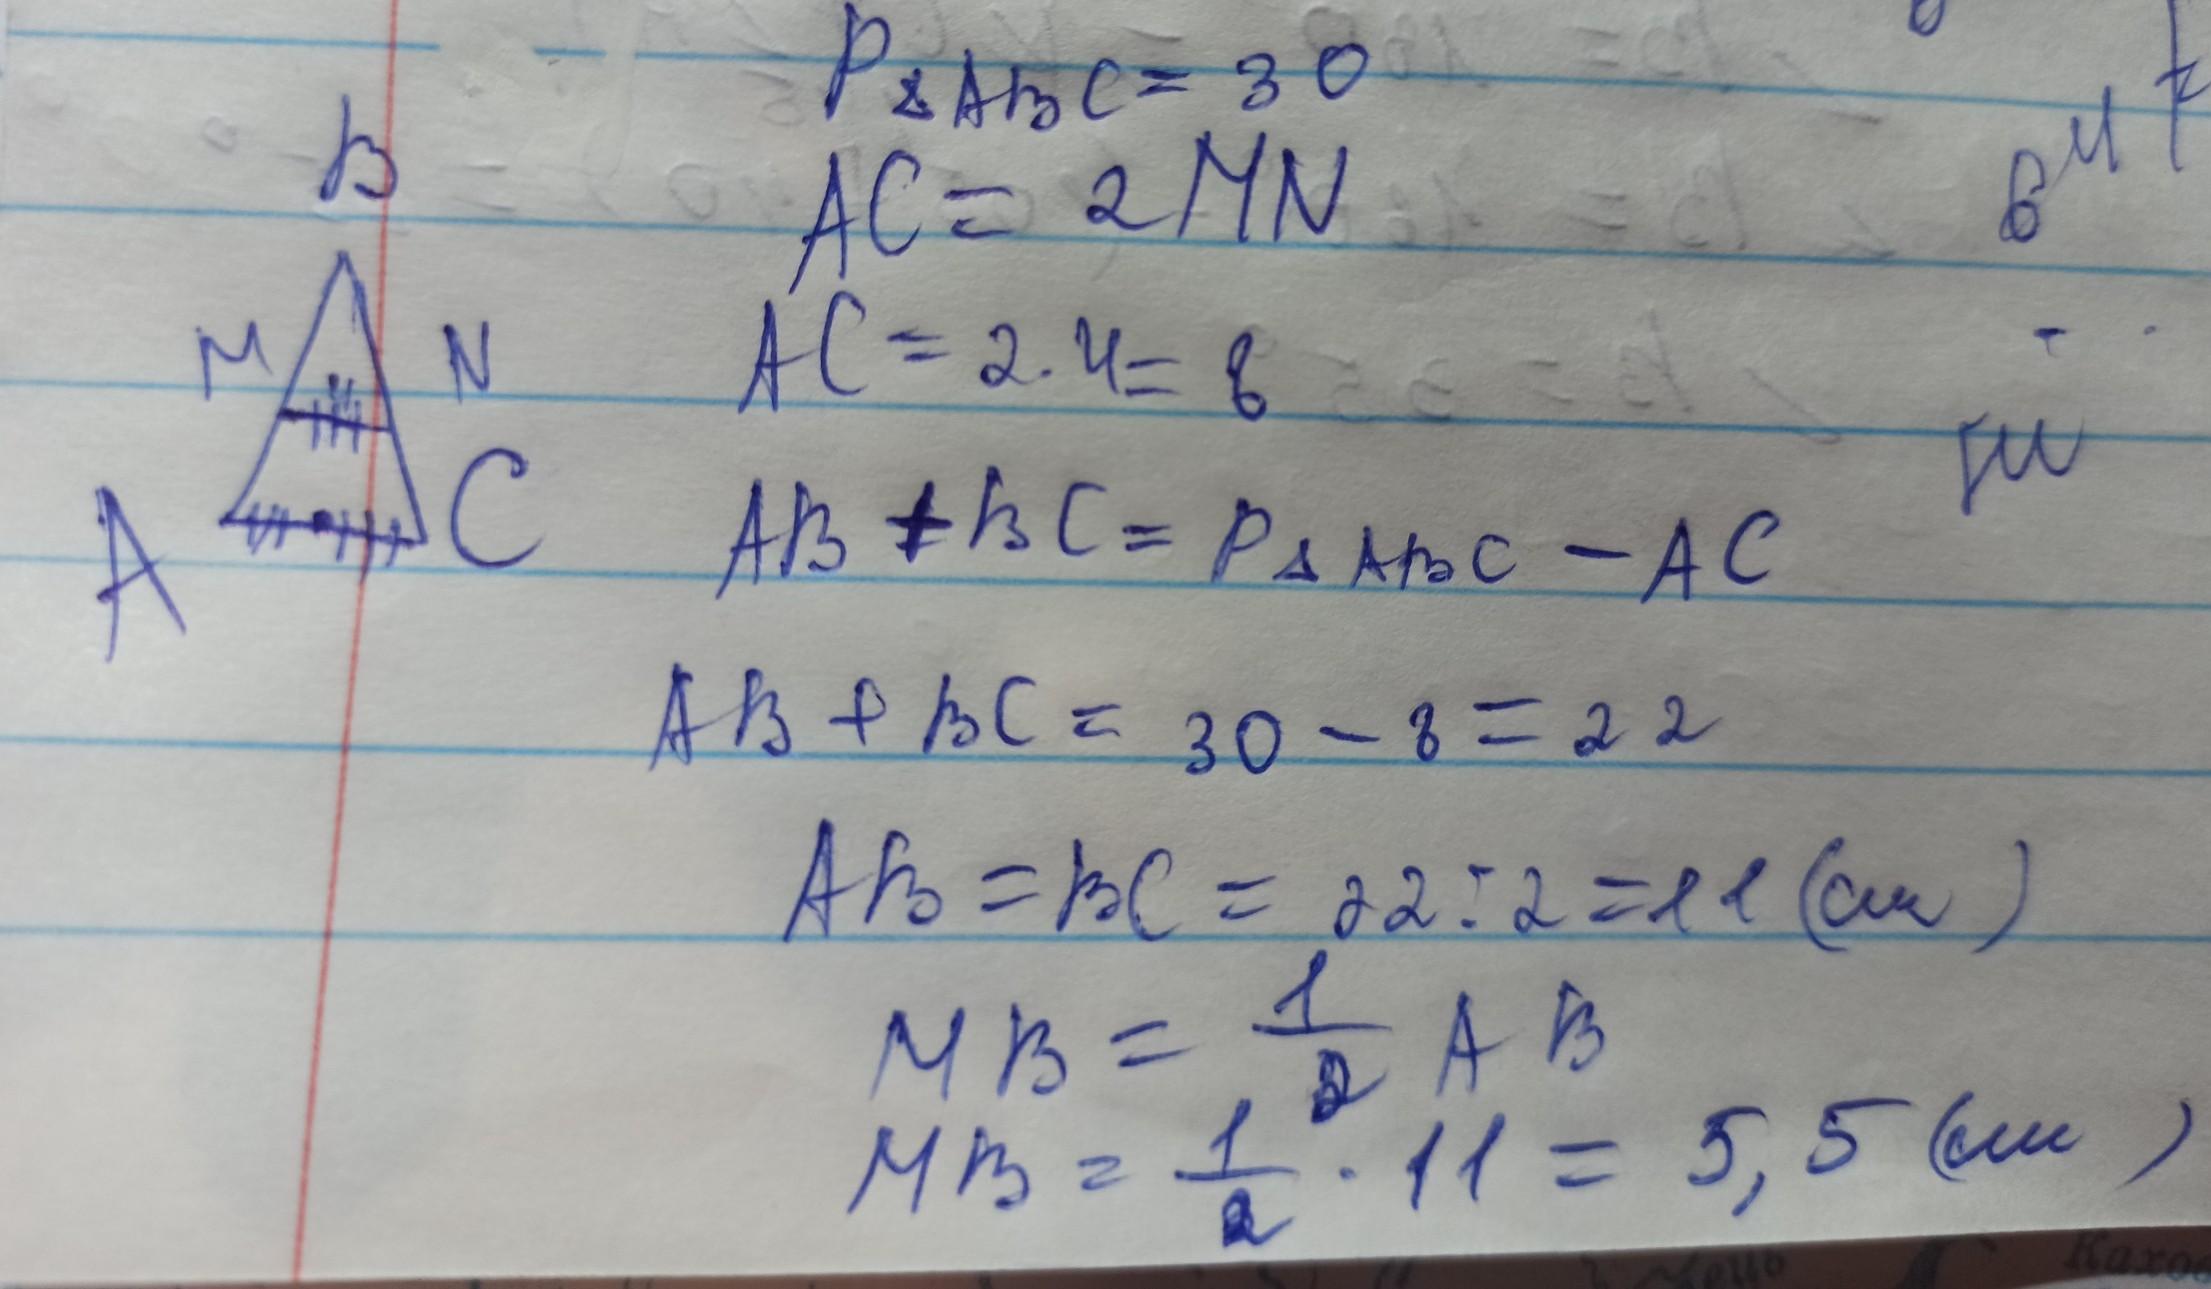 P△ABC = 30
AC = 2MN
AC = 2 · 4 = 8
AB + BC = P△ABC − AC
AB + BC = 30 − 8 = 22
AB = BC = 22 : 2 = 11 (см)
MB = 1/2 AB
MB = 1/2 · 11 = 5,5 (см)
B
M N
A C